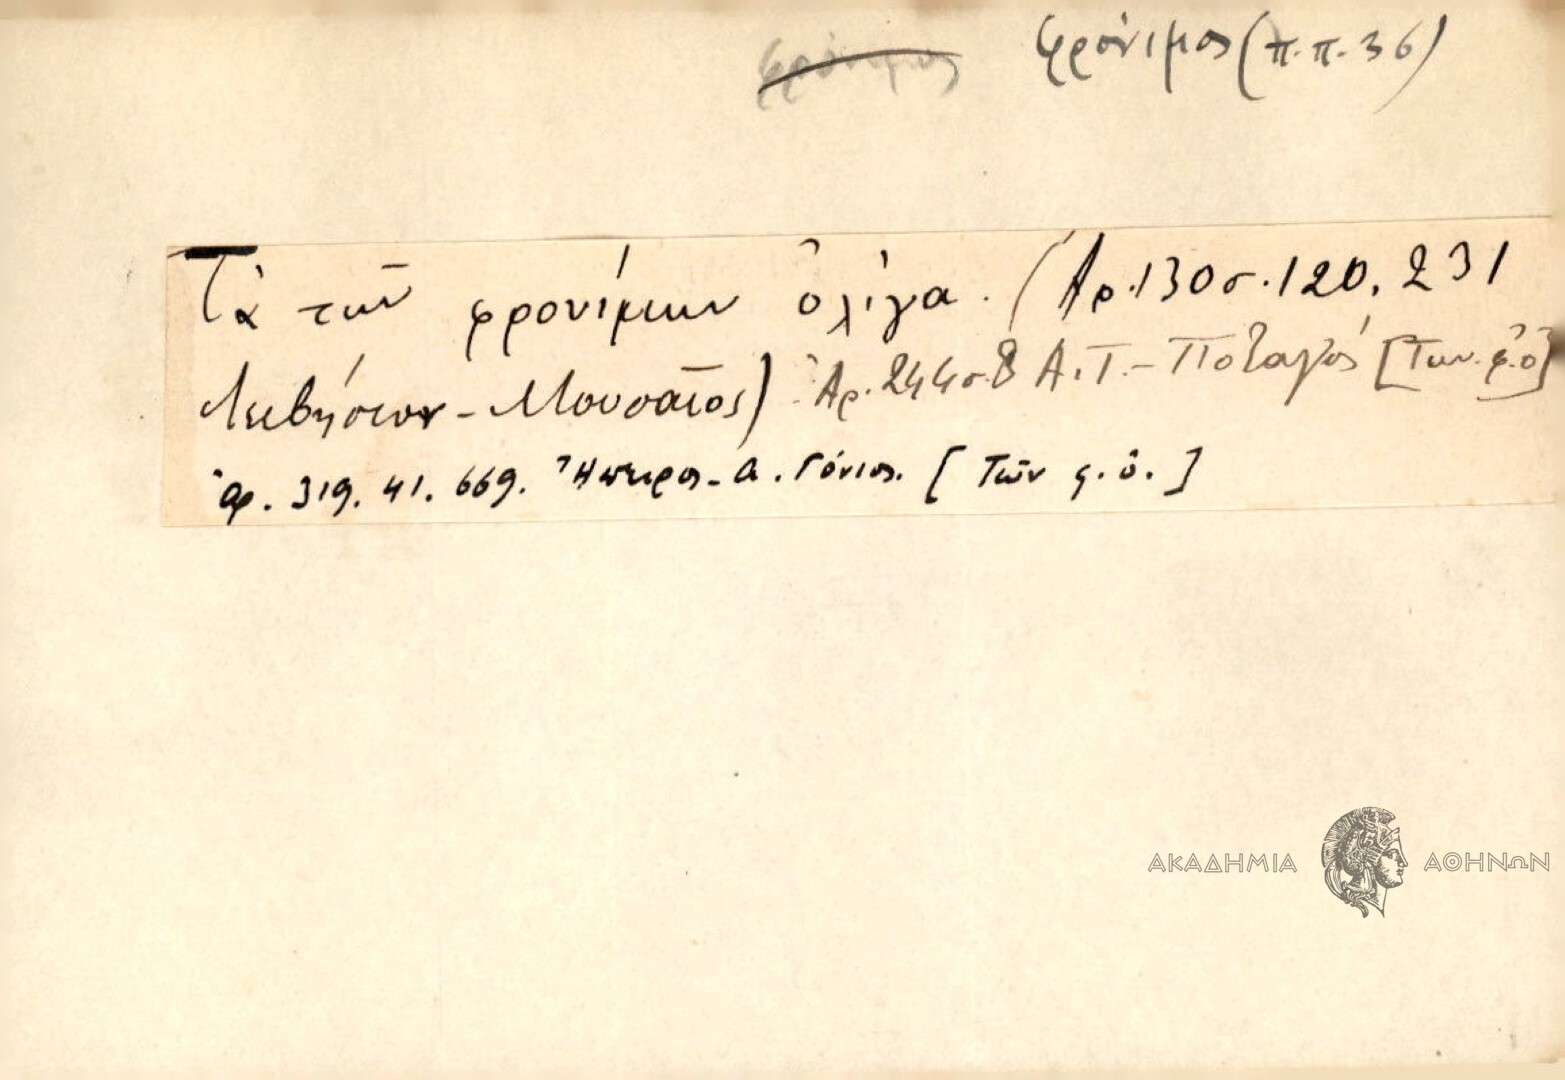 φρόνιμος φρόνιμος (π.π. 36)
Τὰ τῶν φρονίμων ὀλίγα. (Ἀρ. 130 σ. 120, 231
Λιβήσιον - Μουσαῖος) Ἀρ. 244 σ. 8 Α.Τ. - Ποταγός [Των. φ. ὀ]
ἀρ. 319. 41. 669. Ἤπειρος - Α. Γόνιος. [Τῶν φ. ὀ.]
ΑΚΑΔΗΜΙΑ ΑΘΗΝΩΝ